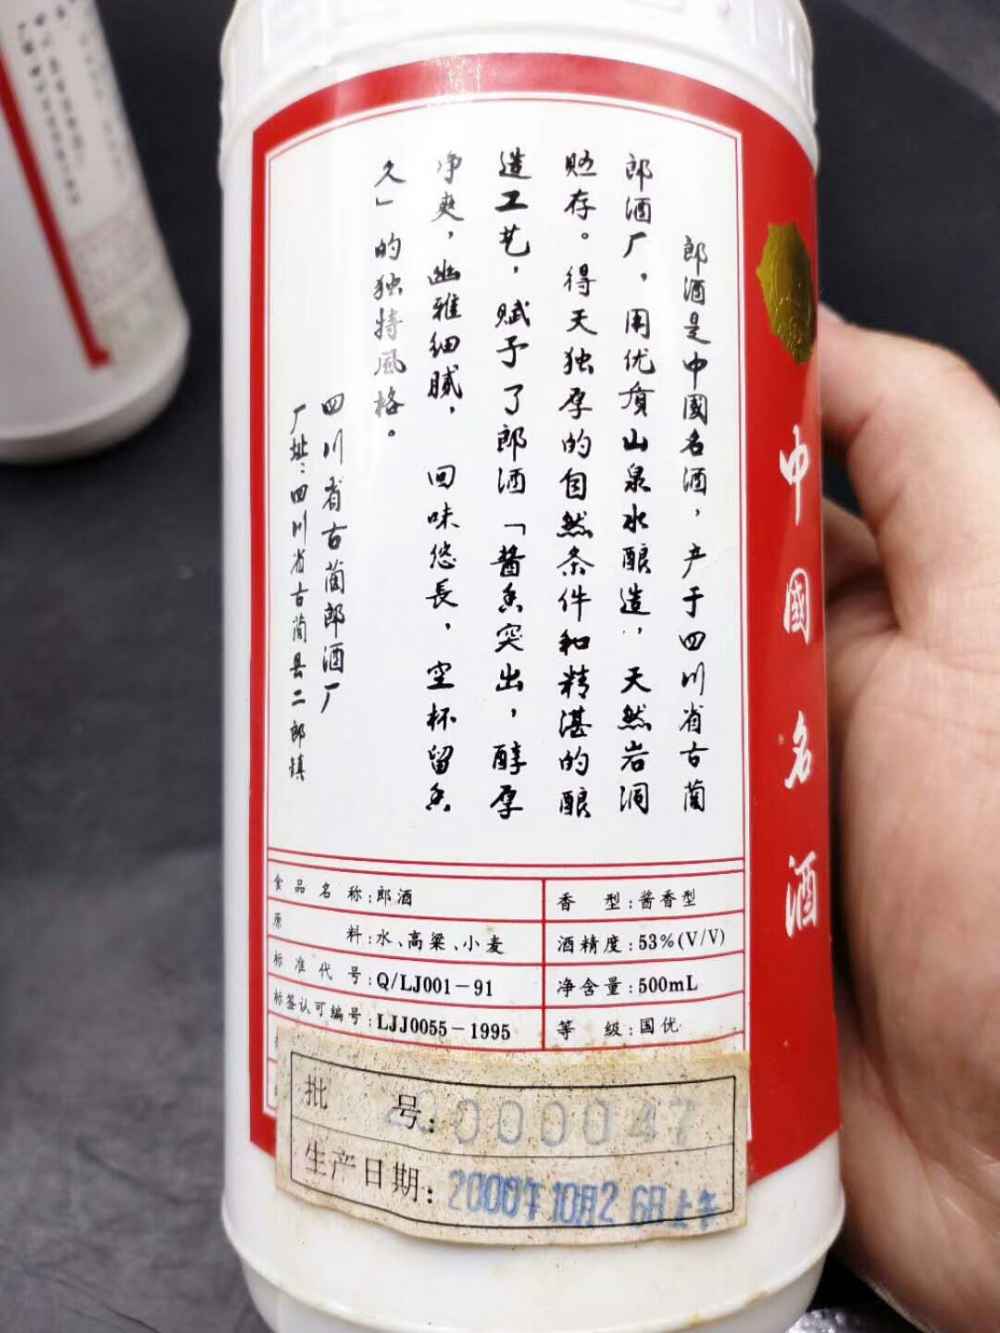 郎酒是中國名酒，产于四川省古蔺
郎酒厂，用优质山泉水酿造，天然岩洞
贮存。得天独厚的自然条件和精湛的酿
造工艺，赋予了郎酒「酱香突出，醇厚
净爽，幽雅细腻，回味悠長，空杯留香
久」的独特風格。
四川省古蔺郎酒厂
厂址：四川省古蔺县二郎镇
中國名酒
食品名称:郎酒
香型:酱香型
原料:水、高粱、小麦
酒精度:53%(V/V)
标准代号:Q/LJ001-91
净含量:500mL
标签认可编号:LJJ0055-1995
等级:国优
批号: 20000047
生产日期: 2000年10月26日上午